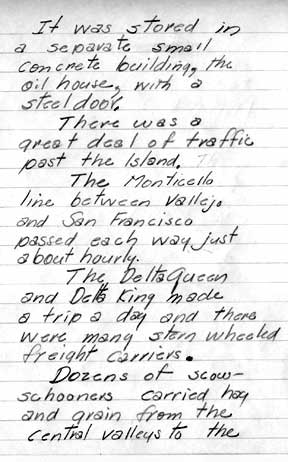 It was stored in
a separate small
concrete building, the
oil house, with a
steel door.
There was a
great deal of traffic
past the Island.
The Monticello
line between Vallejo
and San Francisco
passed each way just
about hourly.
The Delta Queen
and Delta King made
a trip a day and there
were many stern wheeled
freight carriers.
Dozens of scow-
schooners carried hay
and grain from the
central valleys to the